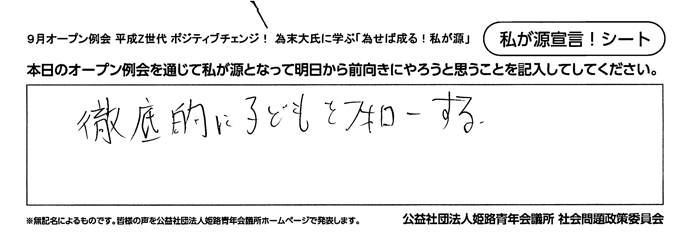 9月オープン例会 平成Z世代 ポジティブチェンジ! 為末大氏に学ぶ「為せば成る!私が源」
私が源宣言!シート
本日のオープン例会を通じて私が源となって明日から前向きにやろうと思うことを記入してしてください。
徹底的に子どもをフォローする.
※無記名によるものです。皆様の声を公益社団法人姫路青年会議所ホームページで発表します。
公益社団法人姫路青年会議所 社会問題政策委員会